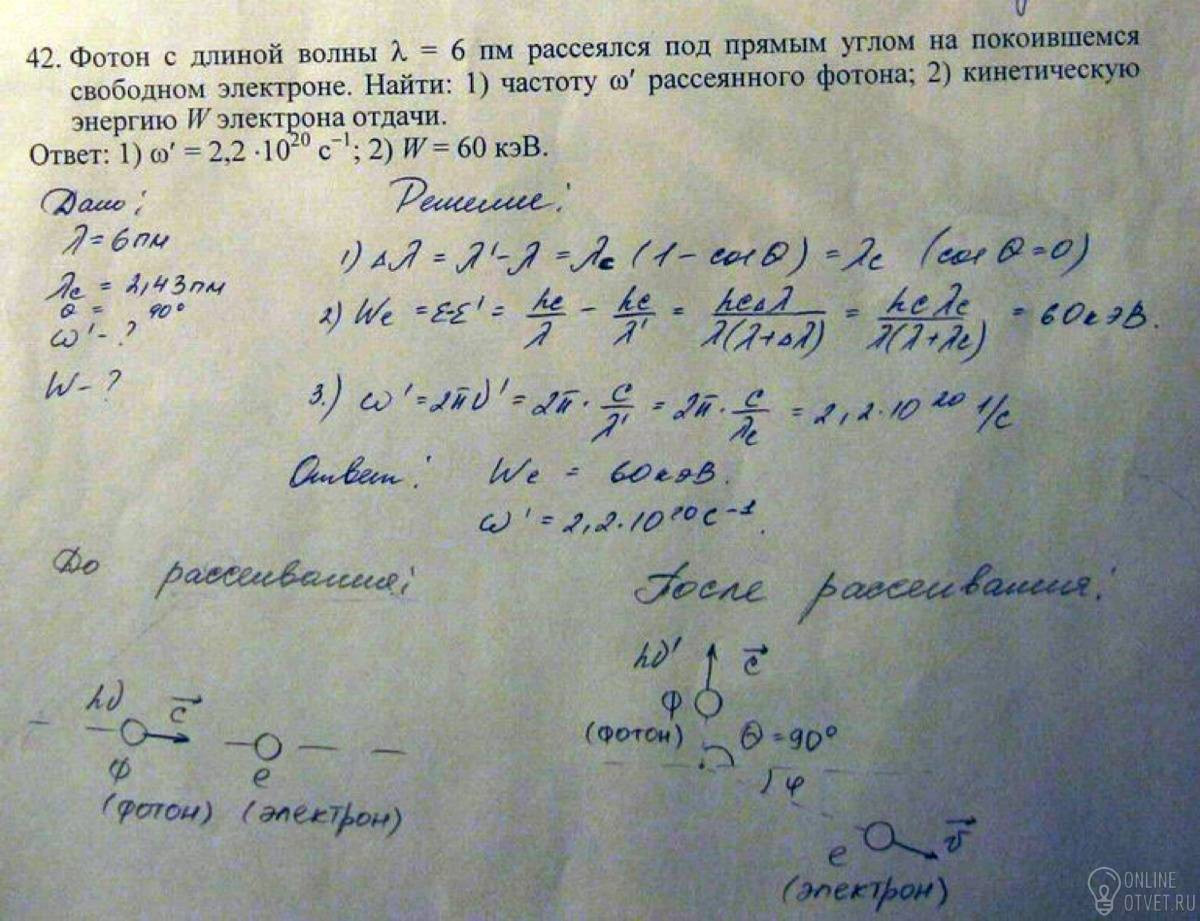 42. Фотон с длиной волны λ = 6 пм рассеялся под прямым углом на покоившемся
свободном электроне. Найти: 1) частоту ω′ рассеянного фотона; 2) кинетическую
энергию W электрона отдачи.
Ответ: 1) ω′ = 2,2 ·10²⁰ с⁻¹; 2) W = 60 кэВ.
Дано:
λ = 6 пм
λc = 2,43 пм
θ = 90°
ω′ - ?
W - ?
Решение:
1) Δλ = λ′ - λ = λc (1 - cos θ) = λc (cos θ = 0)
2) We = ε-ε′ = hc/λ - hc/λ′ = hcΔλ/λ(λ+Δλ) = hcλc/λ(λ+λc) = 60 кэВ.
3.) ω′ = 2πν′ = 2π · c/λ′ = 2π · c/λc = 2,2 · 10²⁰ 1/с
Ответ: We = 60 кэВ.
ω′ = 2,2 · 10²⁰ с⁻¹.
До рассеивания:
hν c⃗
ф e
(фотон) (электрон)
После рассеивания:
hν′ c⃗
ф
(фотон) θ = 90°
φ
e v⃗
(электрон)
ONLINE
OTVET.RU